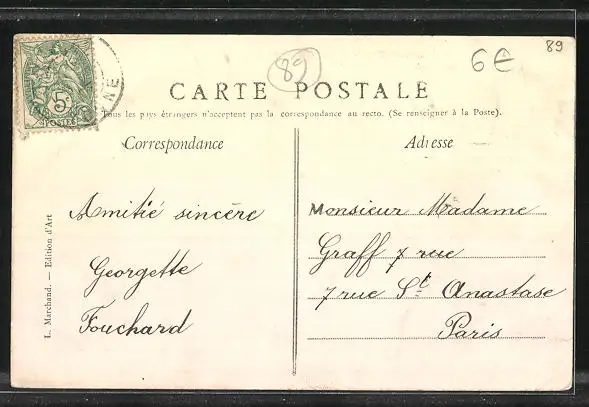 89
6€
89
5c
POSTES
NE
CARTE POSTALE
Tous les pays étrangers n'acceptent pas la correspondance au recto. (Se renseigner à la Poste).
Correspondance
Amitié sincère
Georgette
Fouchard
L. Marchand. — Edition d'Art
Adresse
Monsieur Madame
Graff 7 rue
7 rue St Anastase
Paris